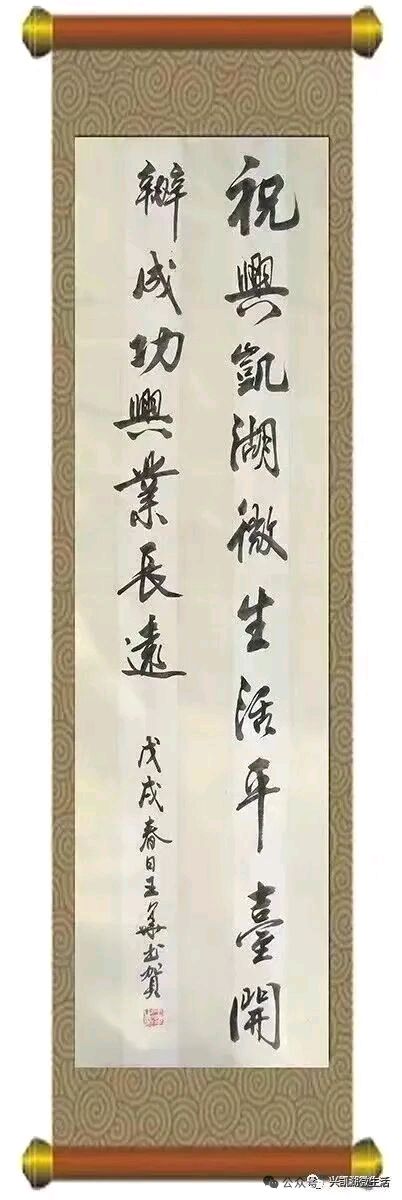 祝興凱湖微生活平臺開
辦成功興業長遠
戊戌春日王
賀
公众号
兴凯湖微生活